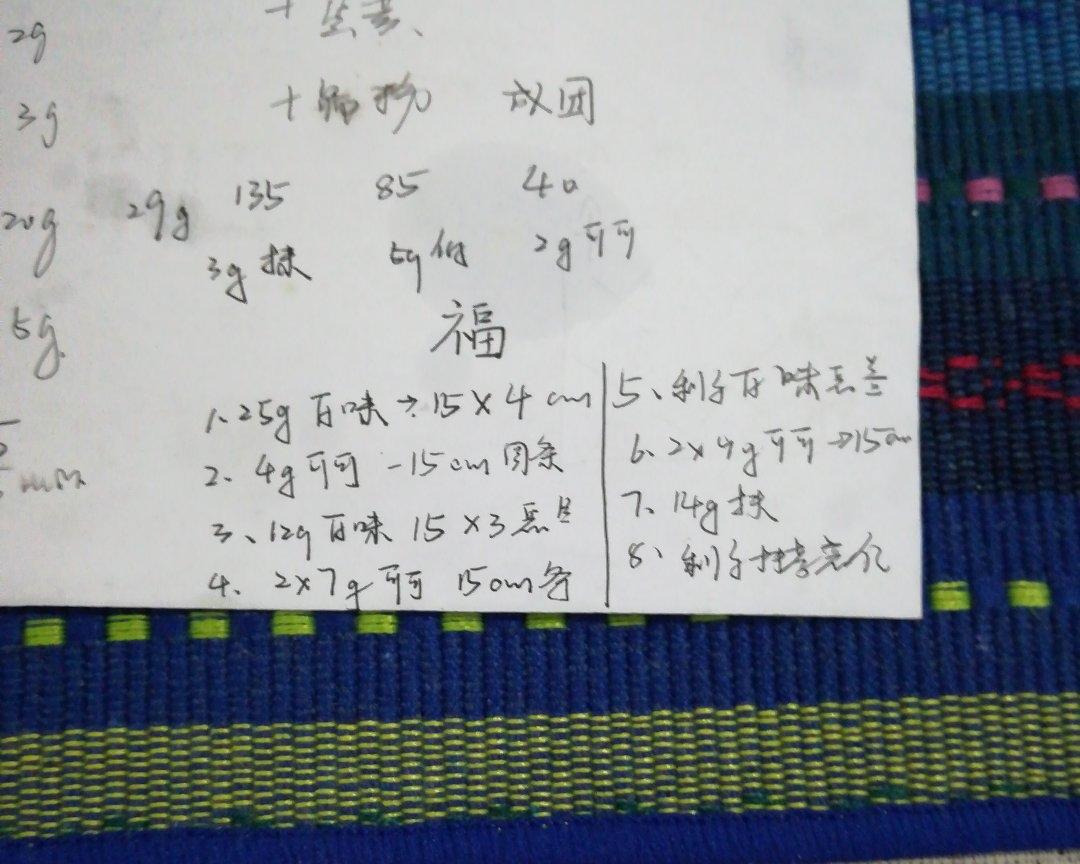 2g
3g
+ 筛粉 成团
20g 29g 135 85 40
3g 抹 5g 2g 可可
5g
福
1. 25g 百味 → 15 × 4 cm
2. 4g 可可 - 15 cm 圆条
3、12g 百味 15 × 3
4. 2×7g 可可 15cm条
5、剩余百味
6、2×4g 可可 → 15cm
7、14g 抹
8、剩余抹